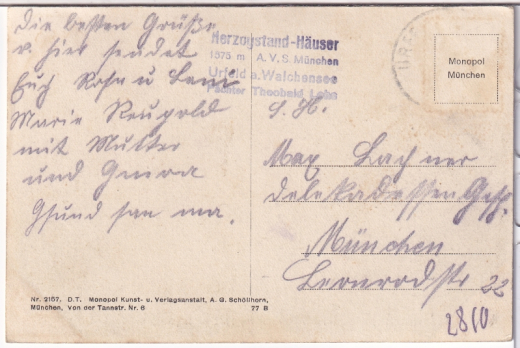 Die besten Grüße
v. hier sendet
Euch Rosa u Leni
Marie Reupold
mit Mutter
und
Gsund san ma.
Herzogstand-Häuser
1575 m A.V.S. München
Urfeld a. Walchensee
Pächter Theobald
Monopol
München
S. H.
Max Lachner
Delekadessen Gesch.
München
Leonrodstr 22
2810
Nr. 2157. D.T. Monopol Kunst- u. Verlagsanstalt, A. G. Schöllhorn,
München, Von der Tannstr. Nr. 6 77 B